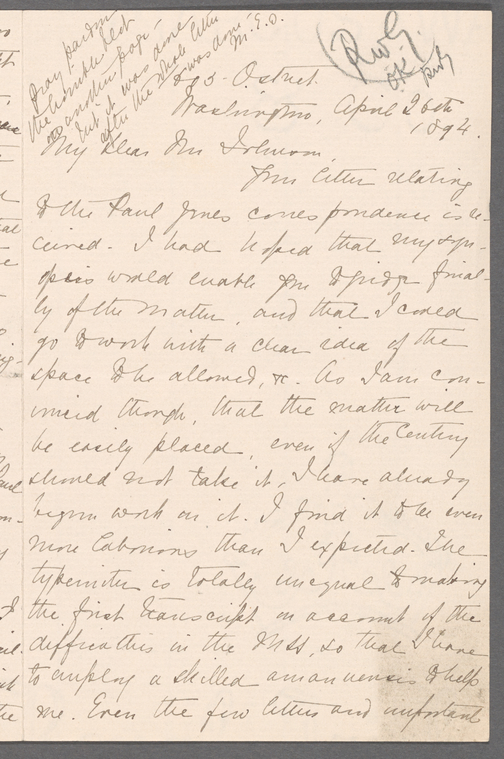 Pray pardon
the horrible blot
on another page,
but it was done
after the whole letter
was done. M. E. D.
RWG.
OK
RWG
- O. street.
Washington, April 26th
1894.
My dear Mr Johnson,
Your letter relating
to the Paul Jones correspondence is re-
ceived. I had hoped that my syn-
opsis would enable you to judge final-
ly of the matter, and that I could
go to work with a clear idea of the
space to be allowed, &c. As I am con-
vinced though, that the matter will
be easily placed, even if the Century
should not take it, I have already
begun work on it. I find it to be even
more laborious than I expected. The
typewriter is totally unequal to making
the first transcript on account of the
difficulties in the MSS, so that I have
to employ a skilled amanuensis to help
me. Even the few letters and important